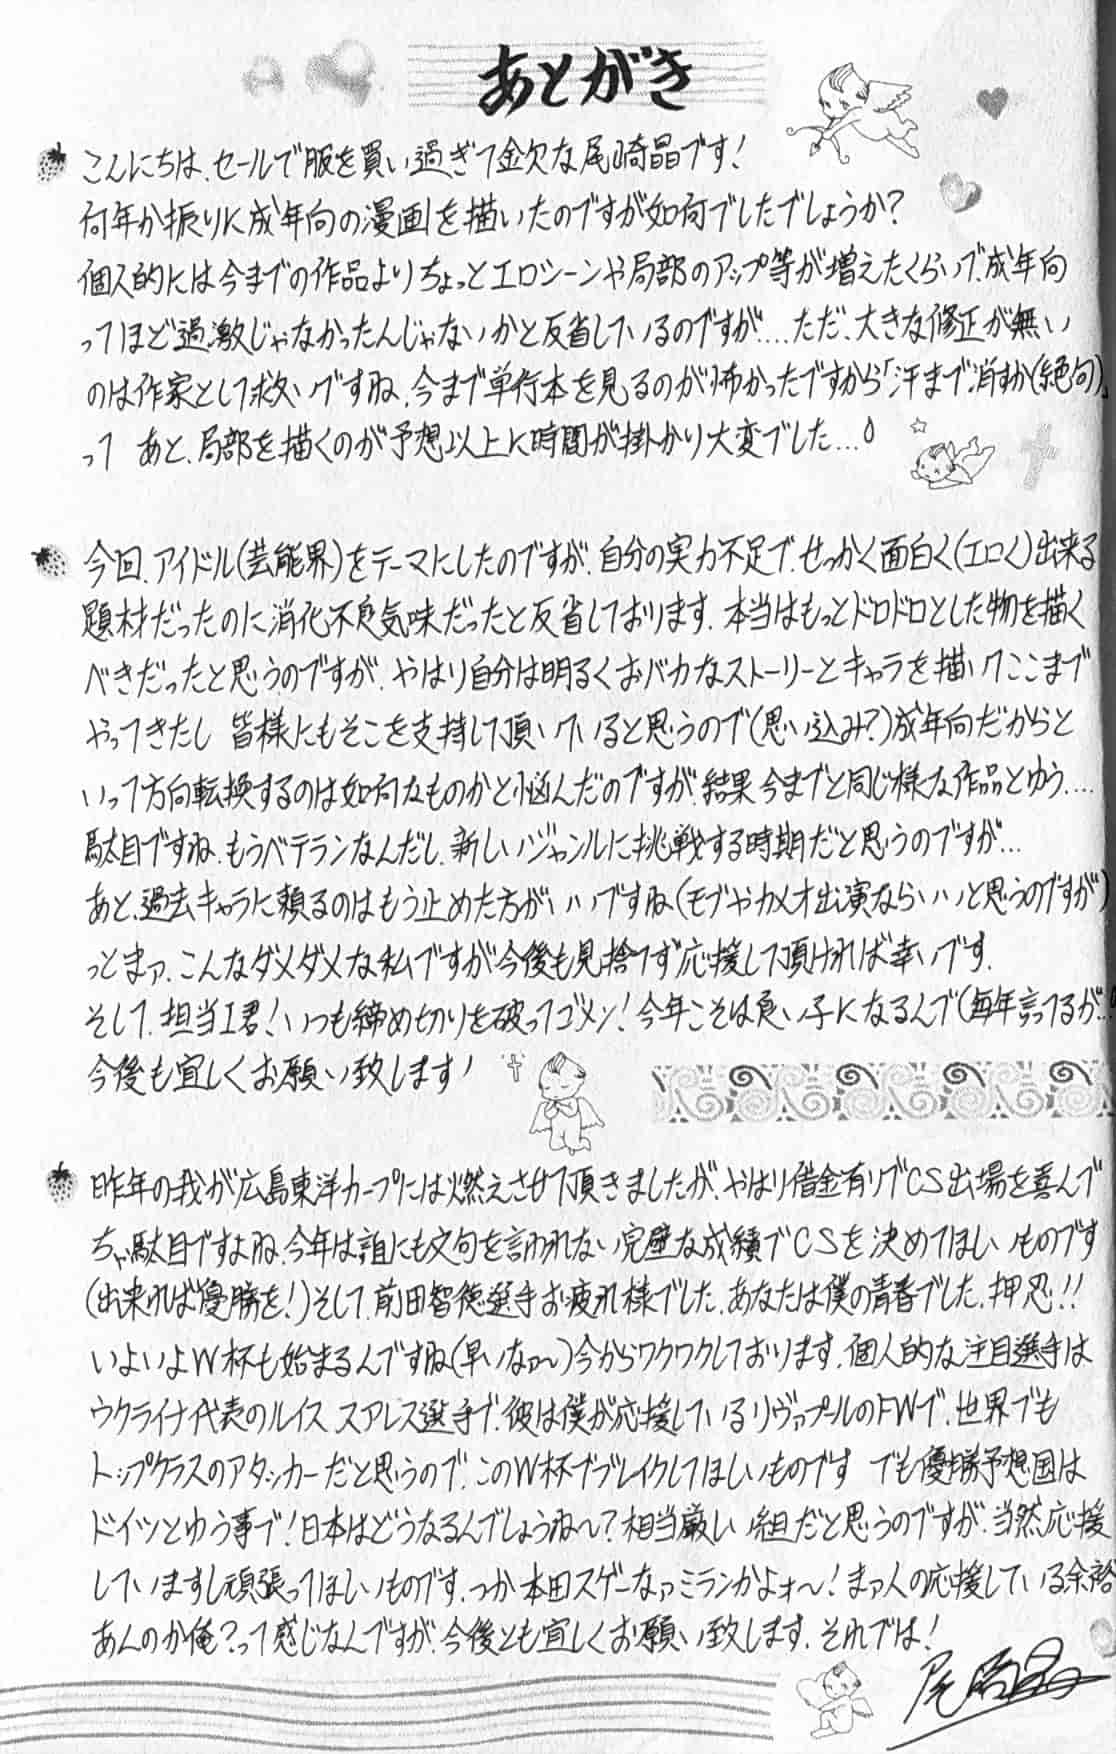 あとがき
こんにちは、セールで服を買い過ぎて金欠な尾崎晶です!
何年か振りに成年向の漫画を描いたのですが如何でしたでしょうか?
個人的には今までの作品よりちょっとエロシーンや局部のアップ等が増えたくらいで、成年向
ってほど過激じゃなかったんじゃないかと反省しているのですが....ただ、大きな修正が無い
のは作家として救いですね、今まで単行本を見るのが怖かったですから「汗まで消すか(絶句)」
って あと、局部を描くのが予想以上に時間が掛かり大変でした...
今回、アイドル(芸能界)をテーマにしたのですが、自分の実力不足で、せっかく面白く(エロく)出来る
題材だったのに消化不良気味だったと反省しております、本当はもっとドロドロとした物を描く
べきだったと思うのですが、やはり自分は明るくおバカなストーリーとキャラを描いてここまで
やってきたし 皆様にもそこを支持して頂いていると思うので(思い込み?)成年向だからと
いって方向転換するのは如何なものかと悩んだのですが、結果今までと同じ様な作品とゆう....
駄目ですね、もうベテランなんだし、新しいジャンルに挑戦する時期だと思うのですが...
あと、過去キャラに頼るのはもう止めた方がいいですね(モブやカメオ出演ならいいと思うのですが)
っとまァ、こんなダメダメな私ですが今後も見捨てず応援して頂ければ幸いです、
そして、担当I君!いつも締め切りを破ってゴメン!今年こそは良い子になるんで(毎年言ってるが..
今後も宜しくお願い致します!
昨年の我が広島東洋カープには燃えさせて頂きましたが、やはり借金有りでCS出場を喜んで
ちゃ駄目ですよね、今年は誰にも文句を言われない完璧な成績でCSを決めてほしいものです
(出来れば優勝を!)そして、前田智徳選手お疲れ様でした、あなたは僕の青春でした、押忍!!
いよいよW杯も始まるんですね(早いなァ〜)今からワクワクしております、個人的な注目選手は
ウクライナ代表のルイス スアレス選手で、彼は僕が応援しているリヴァプールのFWで、世界でも
トップクラスのアタッカーだと思うので、このW杯でブレイクしてほしいものです でも優勝予想国は
ドイツとゆう事で!日本はどうなるんでしょうね〜?相当厳しい組だと思うのですが、当然応援
していますし頑張ってほしいものです、つか本田スゲーなァミランかよォ〜!まァ人の応援している余裕
あんのか俺?って感じなんですが、今後とも宜しくお願い致します、それでは!
尾崎晶